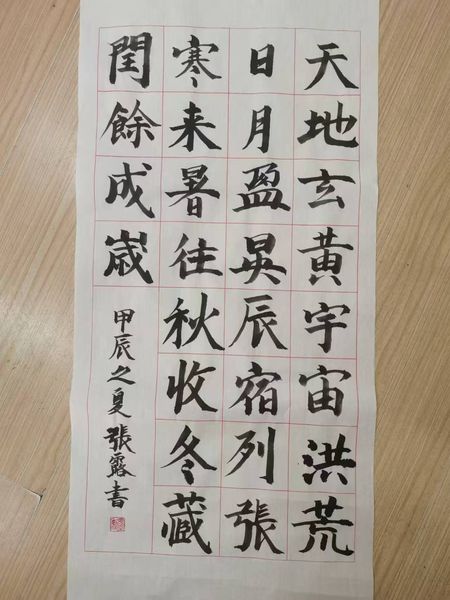 天地玄黃宇宙洪荒
日月盈昃辰宿列張
寒来暑往秋收冬藏
閏餘成歲
甲辰之夏張露書